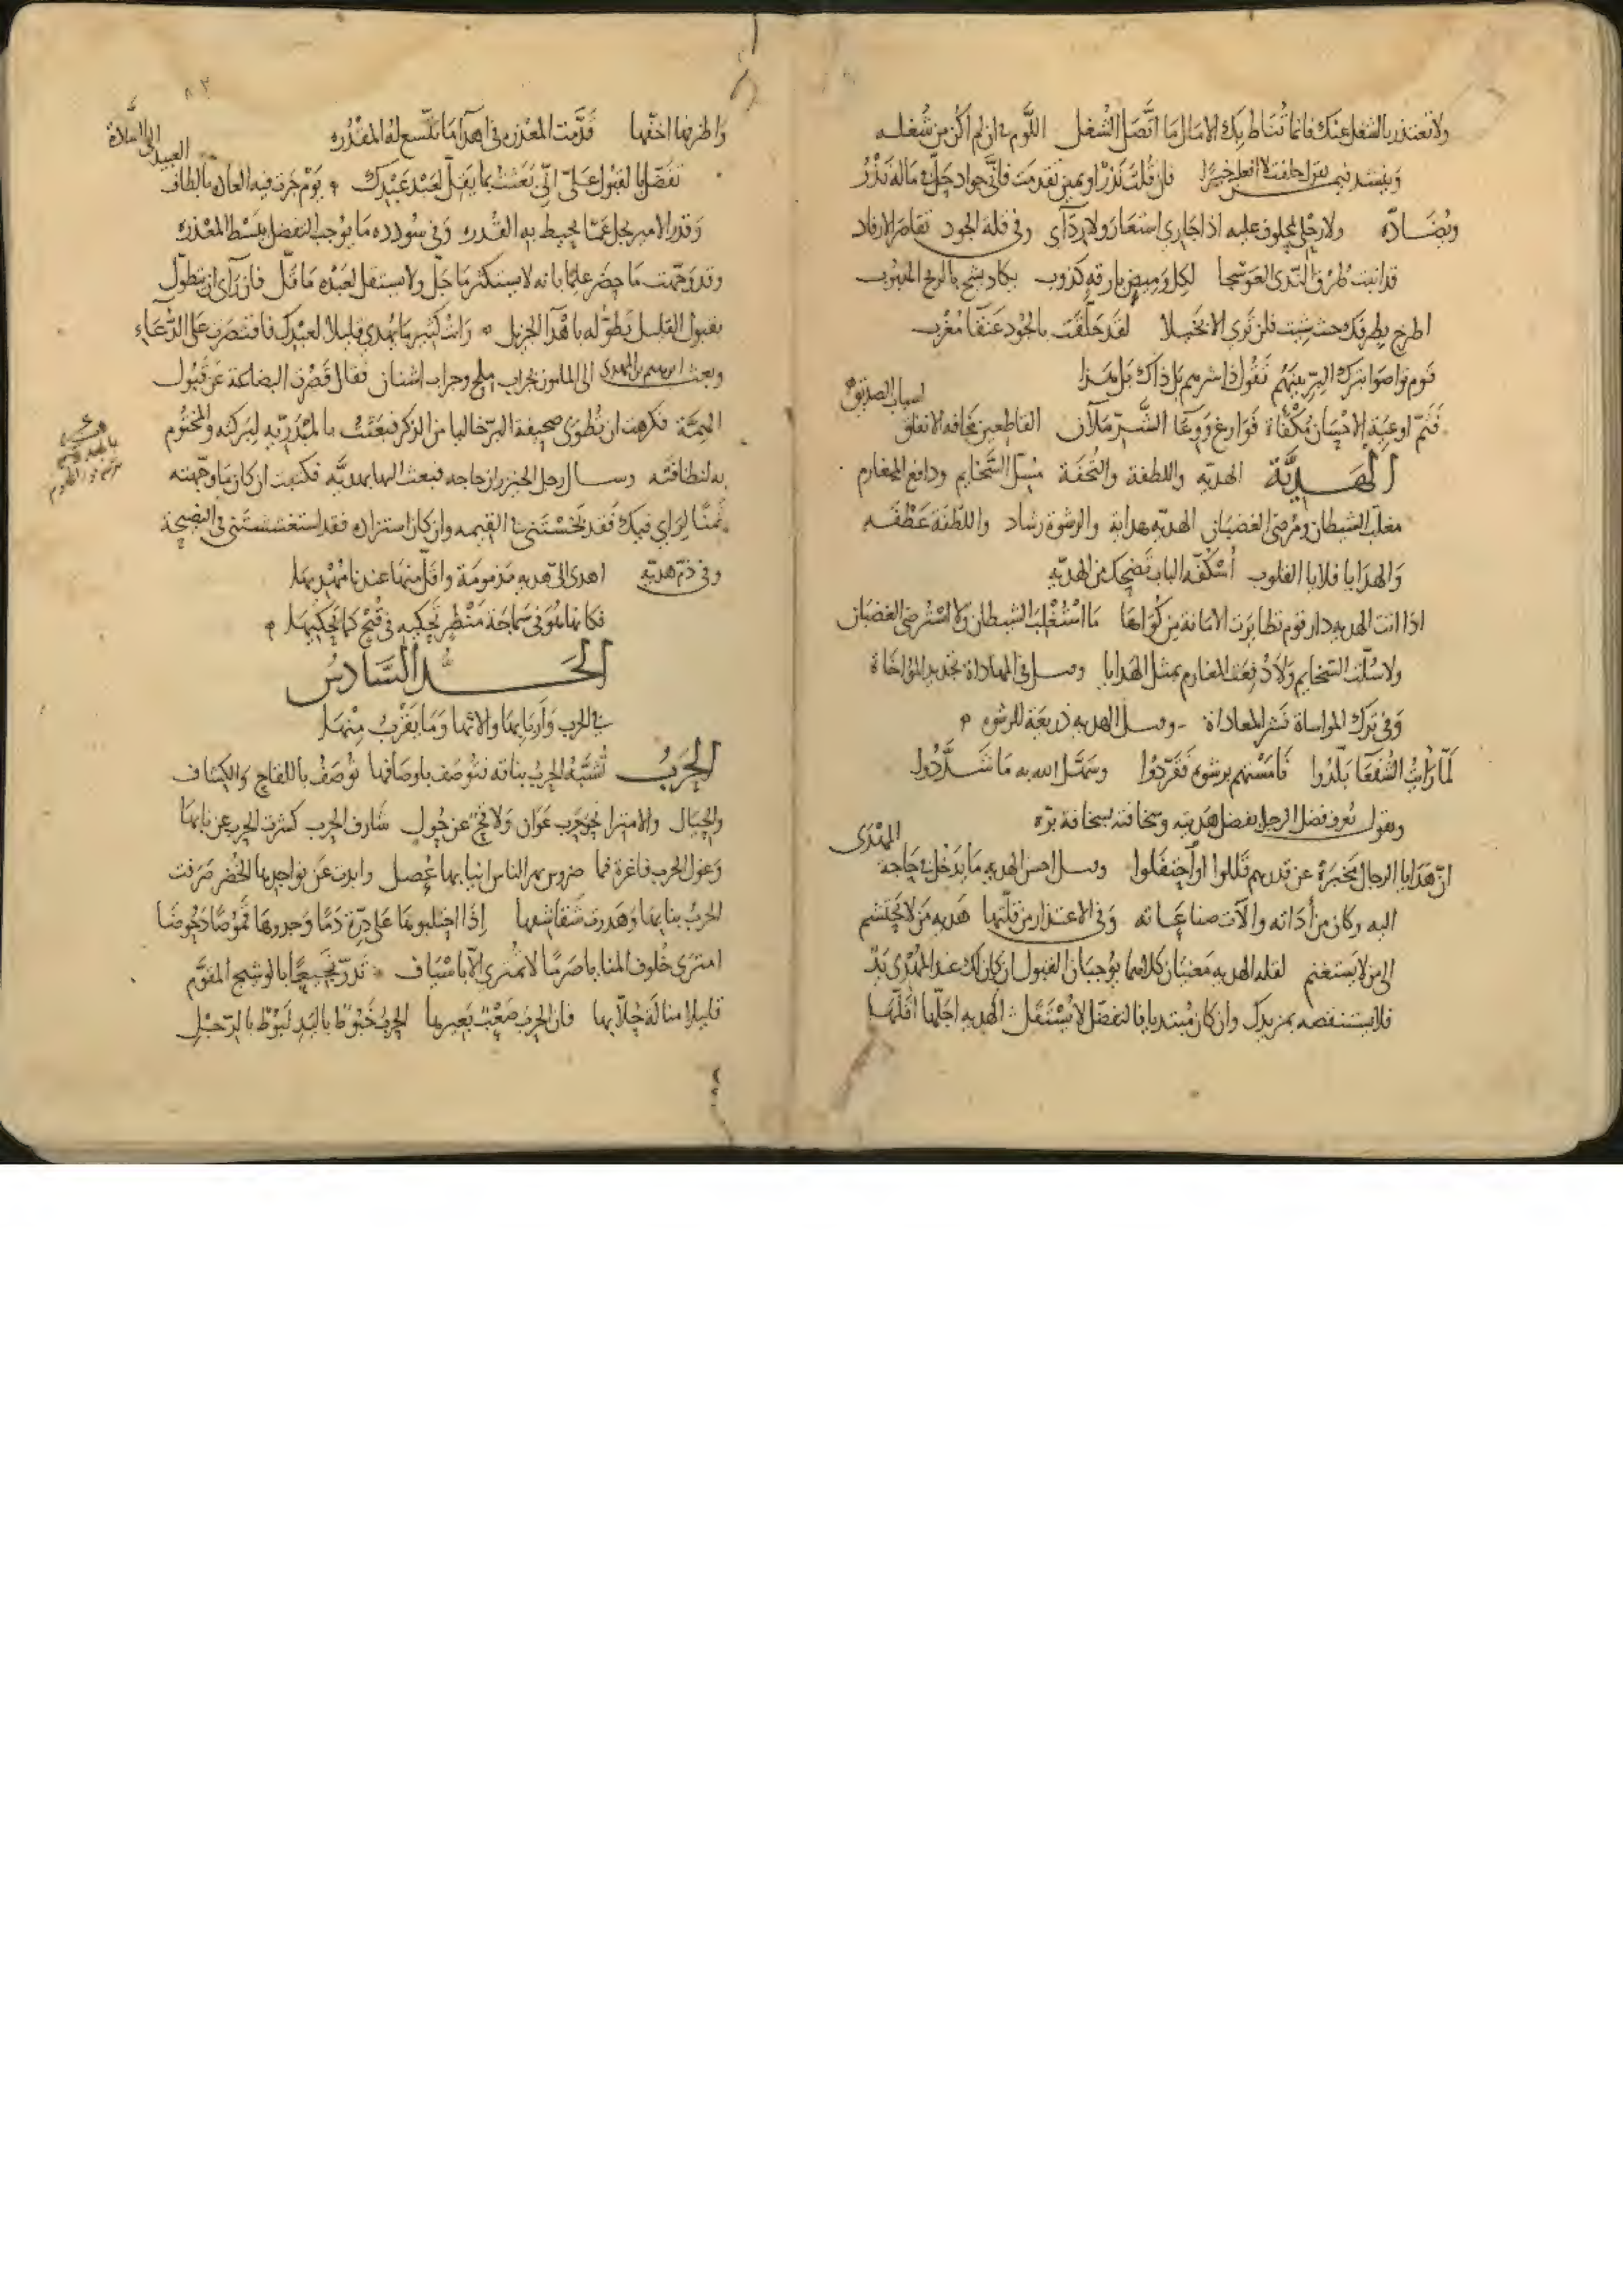 ولا تعتذر بالشغل عنك فانما تناط بك الامال ما اتصل الشغل اللوم في ان لم اكن من شغله
وينشد فيمن حلفت لا افعل خيرا فان قلت نذرا او يمين تقدمت فاي جواد حل في ماله نذر
ويضاده ولا رجلي محلوف عليه اذا جاري استعار ولا ردآي وفي قلة الجود تقاصر الارفاد
قد انبتت طرق الندى العوسجا لكل وميض بارقه كذوب يكاد يشح بالريح الجنوب
اطرح بطرفك حيث شيت فلن ترى الا بخيلا لقد حلقت بالجود عنقا مغرب
قوم تواصوا بترك البر بينهم تقول ذا شرهم بل ذاك بل هذا
فثم اوعية الاحسان مكفأة فوارغ ووعا الشر ملآن القاطعين مخافة الانفاق
اسباب الصديق
الهدية الهديه واللطفة والتحفة مسل السخايم ودافع المغارم
مغلب الشيطان ومرضى الغضبان الهديه هداية والرشوة رشاد واللطفة عطفه
والهدايا قلايا القلوب أسكفة الباب تضحك من الهديه
اذا اتت الهديه دار قوم تطايرت الامانة من كواها ما استغلب الشيطان ولا استرضى الغضبان
ولا سلت السخايم ولا دفعت المغارم بمثل الهدايا وقيل في المهاداة تجديد المؤاخاة
وفي ترك المواساة نشر المعاداة وقيل الهديه ذريعة للرشوه
لما رأيت الشفعا بلدوا فامستهم برشوه فقردوا وسهل الله به ما شددوا
ويقول تعرف فضل الرجل بفضل هديته وسخافته بسخافة بره
ان هدايا الرجال مخبرة عن قدرهم قللوا او احتفلوا وقيل احسن الهديه ما يدخل في حاجة
المهدى
اليه وكان من أداته والآت صناعاته وفي الاعتذار من قلتها هديه من لا يحتشم
الى من لا يستغنم لقله الهديه معنيان كلاهما يوجبان القبول ان كان لك عند المهدى يد
فلا يستنقصه بمزيدك وان كان مبتديا فالتفضل لا يستقل الهديه اجلها اقلها
واظرفها اخفها قدمت المعذره في اهدا ما يتسع له المقدره
العبيد الى السادة
تفضل بالقبول علي اني بعثت بما يقل لعبد عبدك يوم جرت فيه العاده بالطاف
وقدر الامير يجل عما يحيط به القدره وفي سودده ما يوجب التفضل ببسط المعذره
وقد وجهت ما حضر علما بانه لا يستكثر ما جل ولا يستقل لعبده ما قل فان رآى ان يتطول
بقبول القليل تطوله باهدآ الجزيل رايت كثير ما يهدى قليلا لعبدك فاقتصرت على الدعاء
وبعث ابرهيم بن المهدى الى المامون بجراب ملح وجراب اشنان فقال قصرت البضاعة عن قبول
الهمة فكرهت ان تطوى صحيفة البر خاليا من الذكر فبعثت بالمبتدا به لبركته والمختوم
به لنظافته وسال رجل الخبزرزي حاجه فبعث اليها بهديه فكتبت ان كان ما وجهته
ثمنا لرايي فيك فقد بخستني في القيمه وان كان استزاده فقد استغششتني في النصيحة
وفي ذم هديه اهدى الي هديه مذمومة واقل منها عندنا مهديها
فكانها هو في سماجة منظر تحكيه في قبح كما يحكيها
الحد السادس
في الحرب وأربابها والاتها وما يقرب منها
الحرب تشبه الحرب بناقة فتوصف باوصافها توصف باللقاح والكشاف
والحيال والامترا نحو حرب عوان ولاقح عن حول شارف الحرب كشرت الحرب عن نابها
وغول الحرب فاغرة فما ضروس تهر الناس انيابها عصل وابدت عن نواجدها الخضر صرفت
الحرب بنابها وهدرت شقاشقها إذا احتلبوها على درة دما وجدوها
امترى خلوف المنايا صرما لا تمترى الا باسياف تدر نجيعا بالوشيج المقوم
قليلا منا له حلابها فان الحرب صعب بعيرها الحرب خبوط باليد لبوط بالرجل